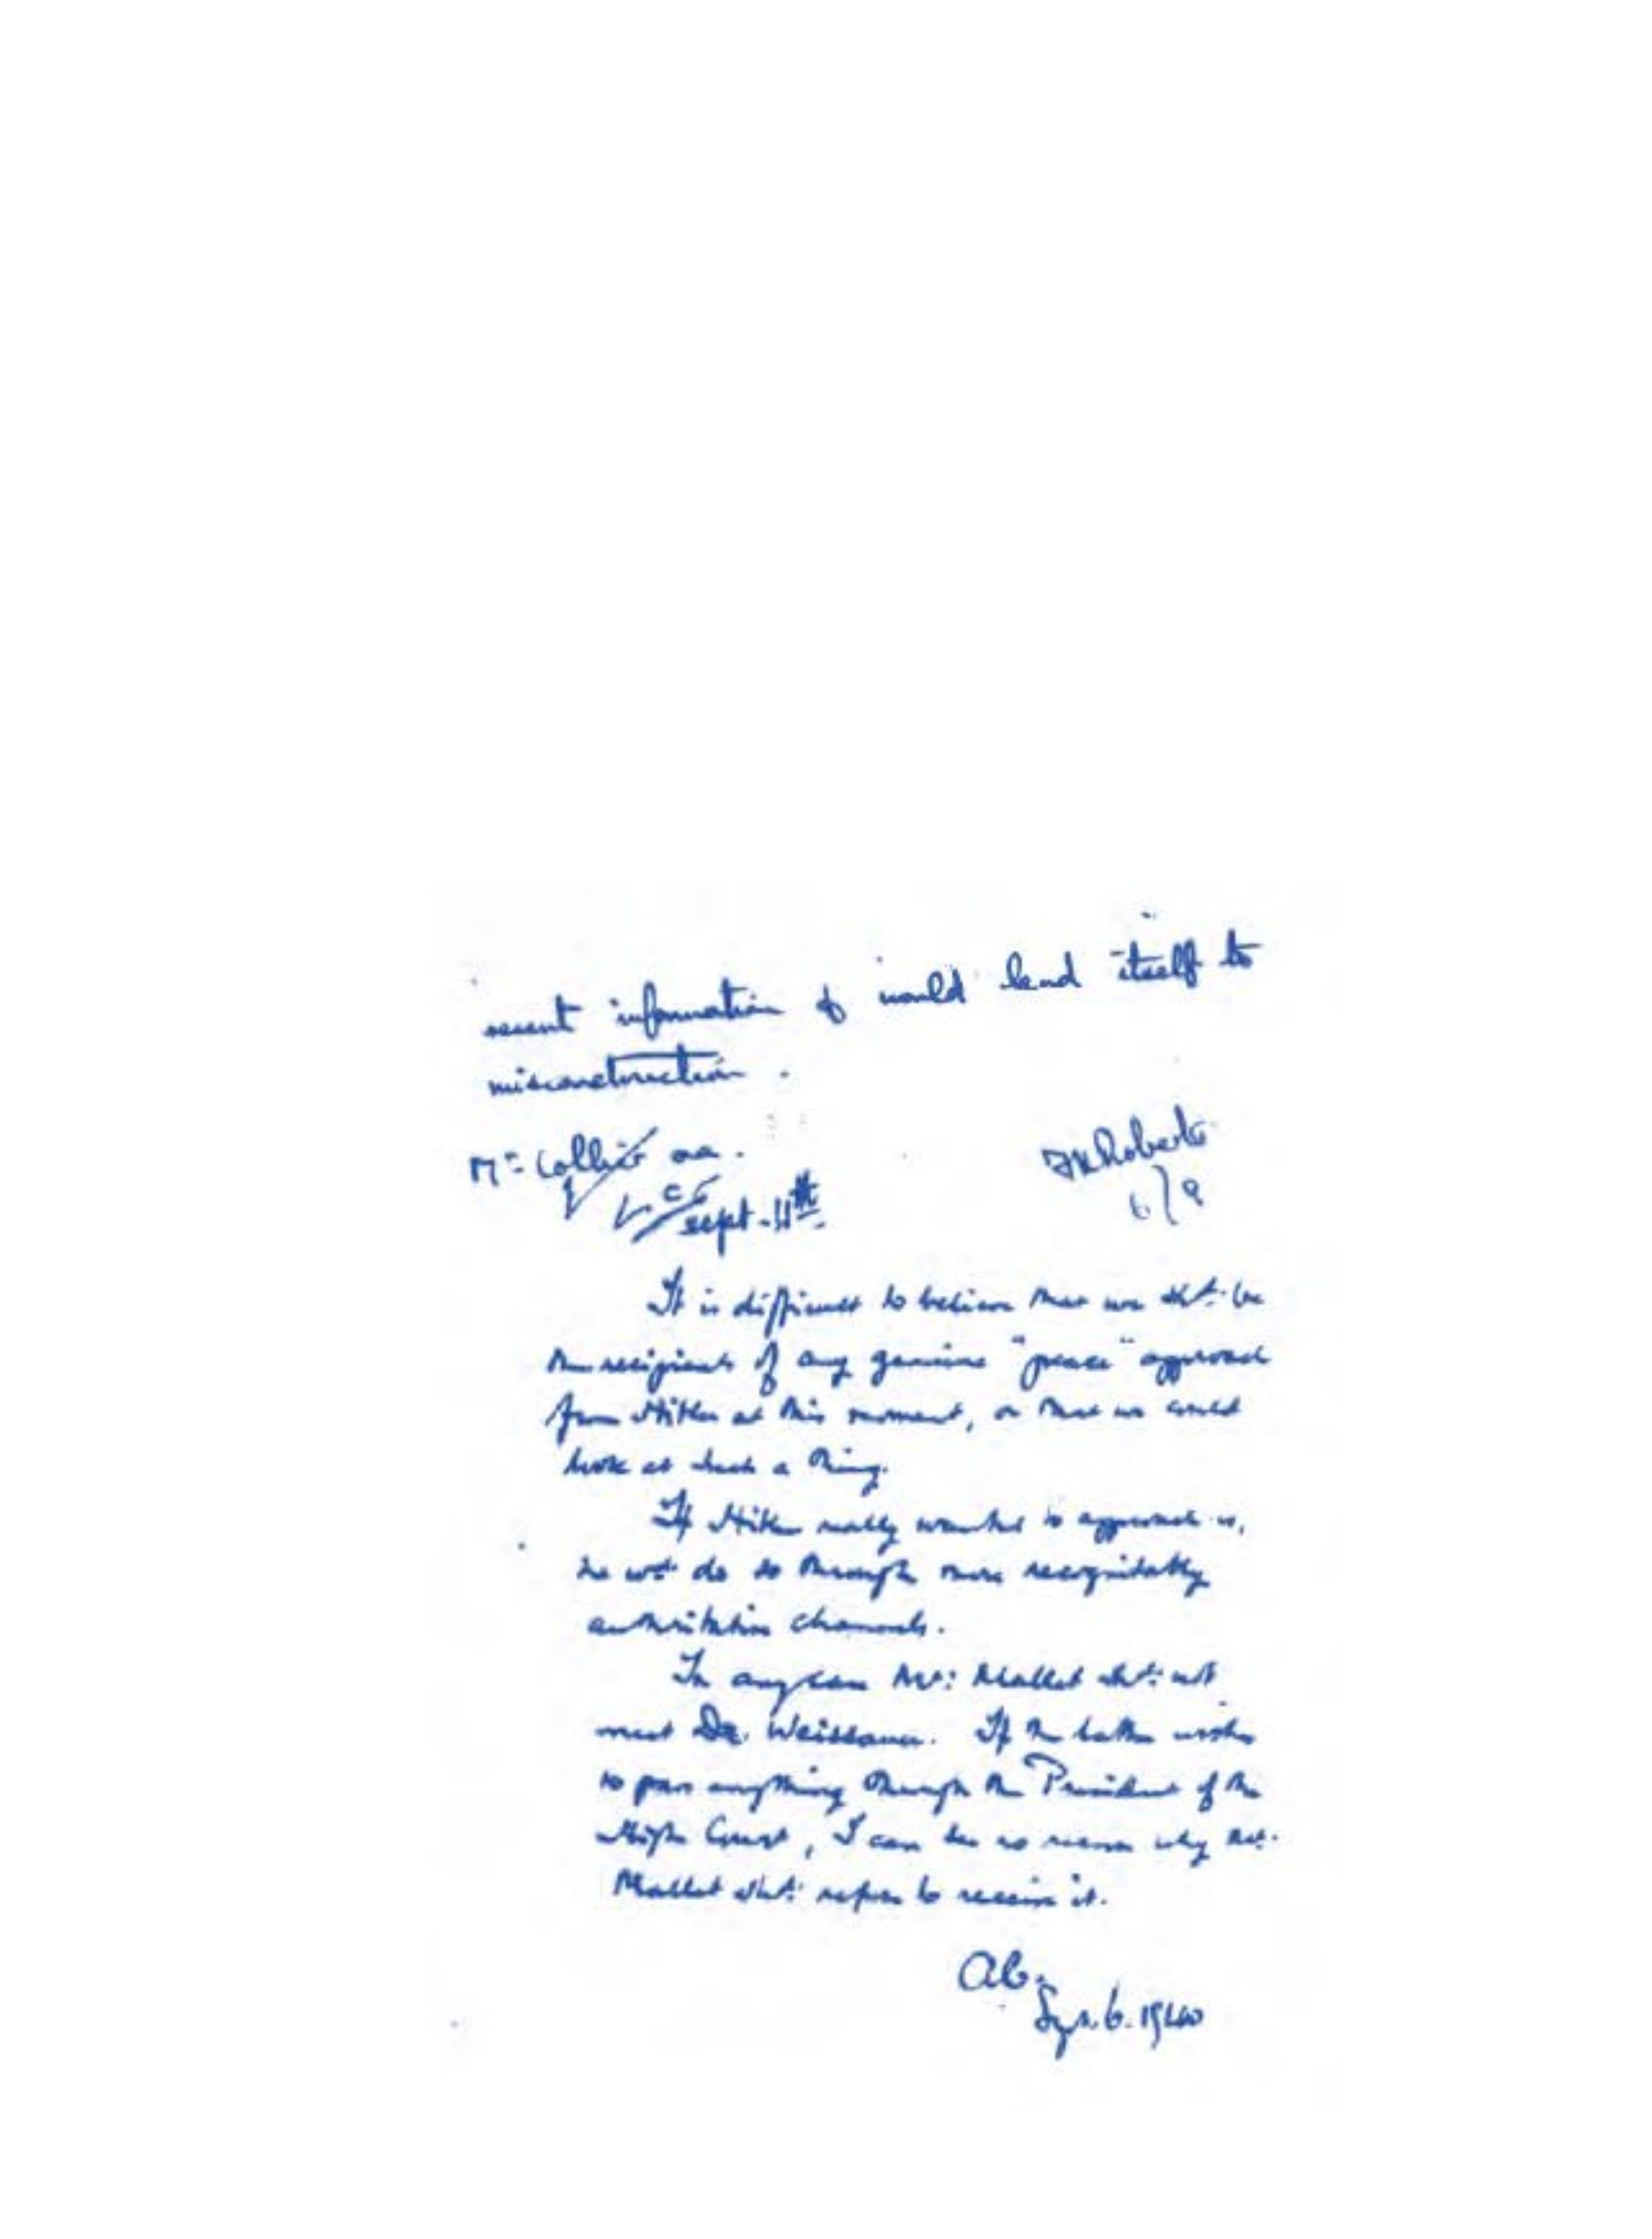 recent information & would lend itself to
misconstruction.
Mr Collier oa.
FK Roberts
Sept. 11th
6/9
It is difficult to believe that we shd: be
the recipients of any genuine "peace" approach
from Hitler at this moment, or that we could
look at such a thing.
If Hitler really wanted to approach us,
he wd do so through more recognizably
authoritative channels.
In any case Mr: Mallet shd: not
meet Dr. Weissauer. If the latter wishes
to pass anything through the President of the
High Court, I can see no reason why Mr.
Mallet shd: refuse to receive it.
Sept. 6. 1940